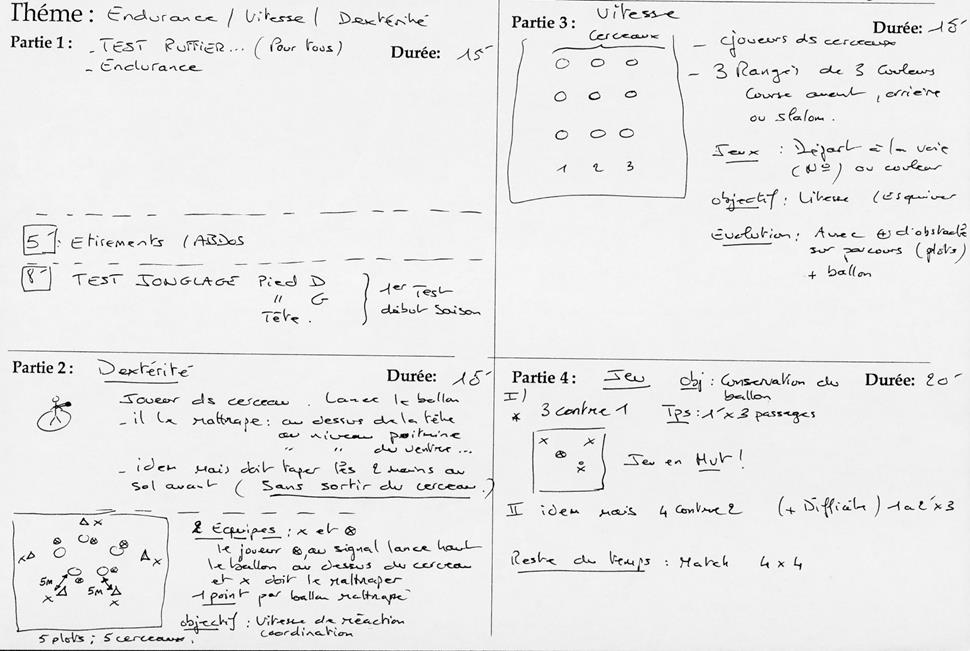 Théme : Endurance / Vitesse / Dextérité
Partie 1 : - TEST RUFFIER... (Pour tous) Durée: 15'
- Endurance
5' : Etirements / ABDOS
8' TEST JONGLAGE Pied D
" G
Tête.
1er Test
début Saison
Partie 2 : Dextérité Durée: 15'
Joueur ds cerceau. Lance le ballon
- il le rattrape : au dessus de la tête
au niveau poitrine
" " du ventre...
- idem mais doit taper les 2 mains au
sol avant ( Sans sortir du cerceau.)
2 Equipes : x et ⊗
le joueur ⊗, au signal lance haut
le ballon au dessus du cerceau
et x doit le rattraper
1 point par ballon rattrapé
objectif : Vitesse de réaction
coordination
5M
5M
5 plots ; 5 cerceaux.
Partie 3 : Vitesse Durée: 15'
Cerceaux
1 2 3
- joueurs ds cerceaux
- 3 Rangés de 3 Couleurs
Course avant, arrière
ou slalom.
Jeux : Départ à la voie
(N°) ou couleur
objectif : Vitesse (Esquiver
Evolution : Avec ⊕ d'obstacle
sur parcours (plots)
+ ballon
Partie 4 : Jeu obj : Conservation du Durée: 20'
ballon
I)
* 3 contre 1 Tps : 1' x 3 passages
Jeu en Mvt !
II idem mais 4 contre 2 (+ Difficile) 1 a 2' x 3
Reste du temps : Match 4 x 4